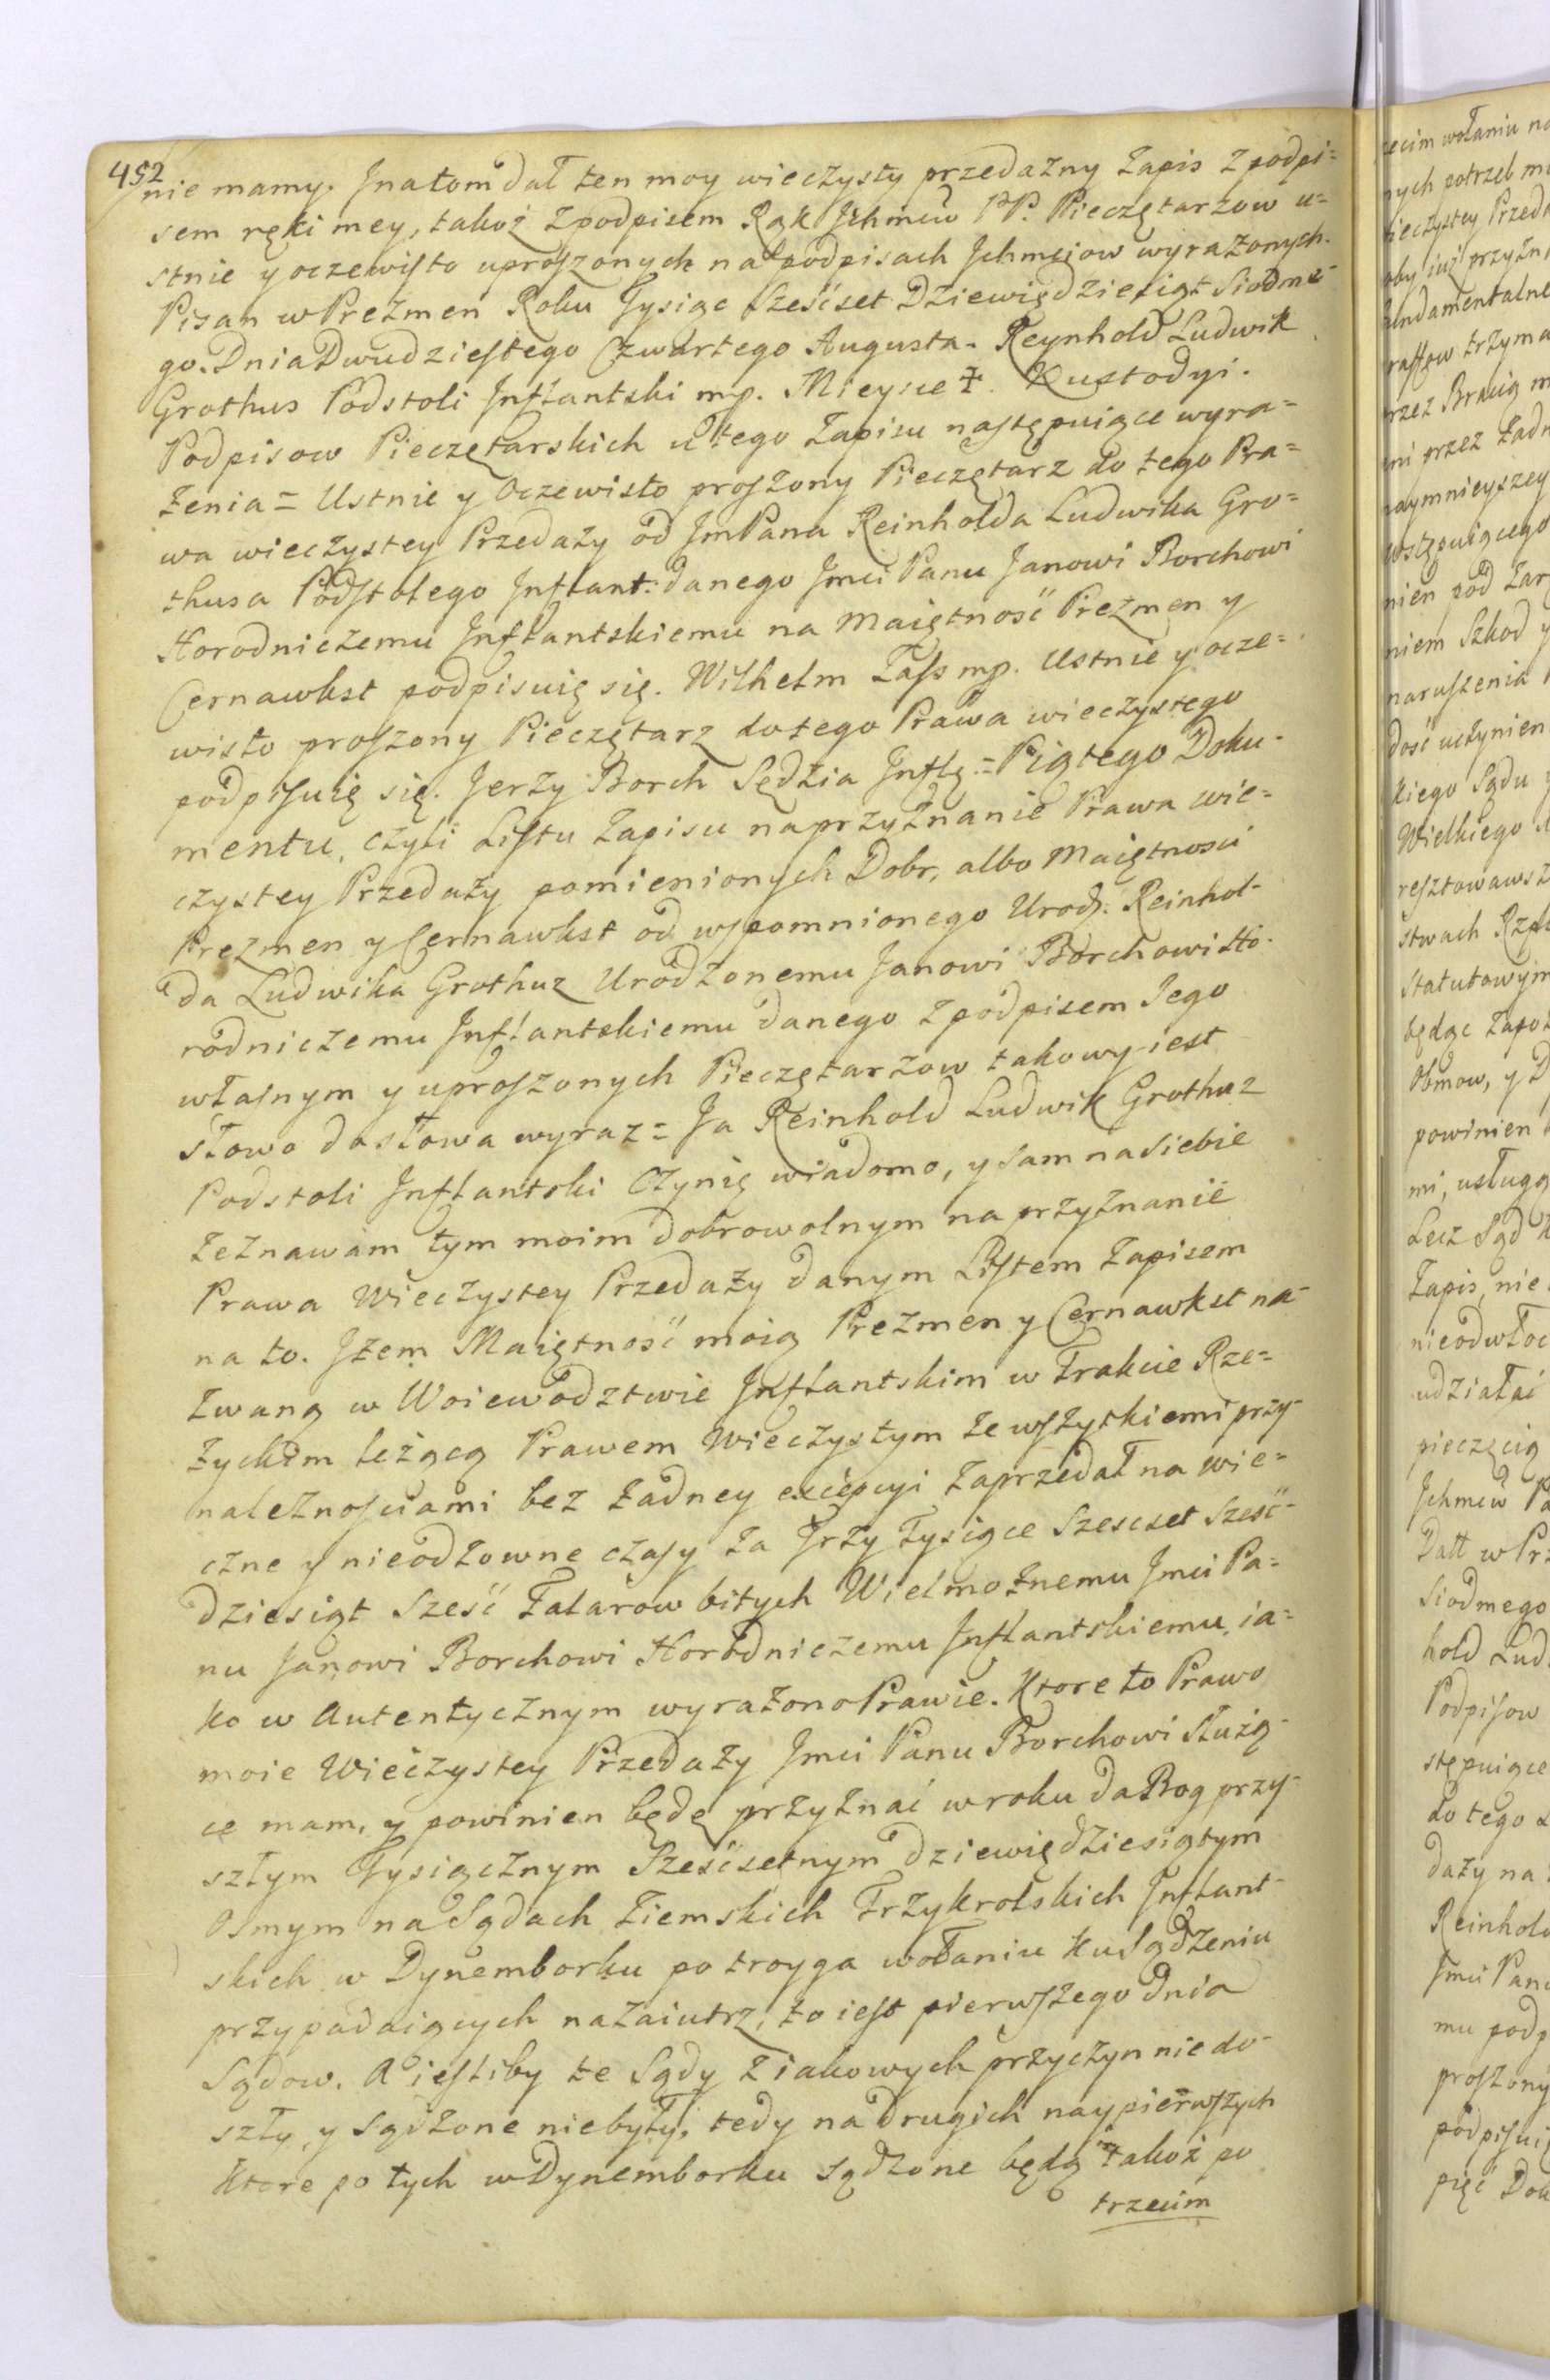 452
nie mamy. Jnatom dał ten moy wieczysty przedazny Zapis z podpi=
sem ręki mey, takoż z podpisem Rąk Jchmćiw PP. Pieczętarzow u=
stnie y oczewisto uproszonych na podpisach Jchmciow wyrażonych.
Pisan w Preżmen Roku Tysiąc Sześćset Dziewiędziesiąt Siodme=
go. Dnia Dwudziestego Czwartego Augusta. Reynhold Ludwik
Grothus Podstoli Jnflantski mp. Mieysce ‡. Kustodyi.
Podpisow Pieczętarskich u tego Zapisu następuiące wyra=
żenia = Ustnie y Oczewisto proszony Pieczętarz do tego Pra=
wa wieczystey Przedaży od JmPana Reinholda Ludwika Gro=
thusa Podstolego Jnflant: danego Jmci Panu Janowi Borchowi
Horodniczemu Jnflantskiemu na Maiętność Preżmen y
Cernawkst podpisuię się. Wilhelm Zass mp. Ustnie y ocze=
wisto proszony Pieczętarz do tego Prawa wieczystego
podpisuię się. Jerzy Borch Sędzia Jnflą = Piątego Doku-
mentu, czyli Listu Zapisu na przyżnanie Prawa wie=
czystey Przedaży pomienionych Dobr, albo Maiętnosci
Preżmen y Cernawkst od wspomnionego Urodz. Reinhol-
da Ludwika Grothuz Urodzonemu Janowi Borchowi Ho-
rodniczemu Jnflantskiemu danego z podpisem Jego
własnym y uproszonych Pieczętarzow takowy iest
słowo dosłowa wyraz = Ja Reinhold Ludwik Grothuz
Podstoli Jnflantski Czynię wiadomo, y sam nasiebie
zeznawam tym moim dobrowolnym na przyżnanie
Prawa Wieczystey Przedaży danym Listem Zapisem
na to. Jżem Maiętność moią Preżmen y Cernawkst na-
zwaną w Woiewodztwie Jnflantskim w Trakcie Rze=
życkim leżącą Prawem Wieczystym ze wszytkiemi przy-
należnosciami bez żadney excepcyi zaprzedał na wie=
czne y nieodzowne czasy za Trzy Tysiące Szescset Sześć-
dziesiąt Sześć Talarow bitych Wielmożnemu Jmci Pa=
nu Janowi Borchowi Horodniczemu Jnflantskiemu, ia=
ko w Autentycznym wyrażono Prawie. Ktore to Prawo
moie Wieczystey Przedaży Jmci Panu Borchowi służą-
ce mam, y powinien będę przyżnać w roku da Bog przy-
szłym Tysiącznym Sześćsetnym dziewiędziesiątym
Osmym na Sądach Ziemskich Trzykrolskich Jnflant-
skich w Dynemborku po troyga wołaniu ku Sądzeniu
przypadaiących nazaiutrz, to iest pierwszego dnia
Sądow. A iesliby te Sądy z iakowych przyczyn niedo-
szły, y Sądzone niebyły, tedy na drugich naypierwszych
ktore po tych w Dynemborku sądzone będą takoż po
trzecim